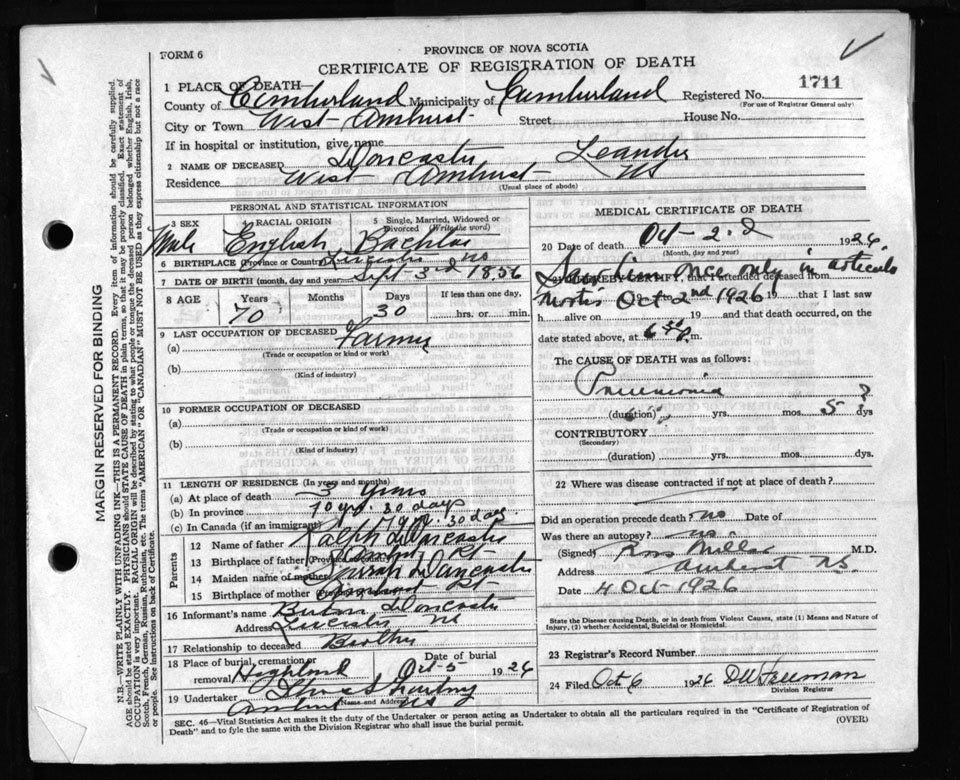 FORM 6
PROVINCE OF NOVA SCOTIA
CERTIFICATE OF REGISTRATION OF DEATH
1711
1 PLACE OF DEATH—
County of Cumberland Municipality of Cumberland Registered No.
(For use of Registrar General only)
City or Town West Amherst Street House No.
If in hospital or institution, give name
2 NAME OF DECEASED Doncaster Leander
Residence West Amherst NS
(Usual place of abode)
PERSONAL AND STATISTICAL INFORMATION
3 SEX 4 RACIAL ORIGIN 5 Single, Married, Widowed or Divorced (Write the word)
Male English Bachelor
6 BIRTHPLACE (Province or Country) Leicester NS
7 DATE OF BIRTH (month, day and year) Sept 3rd 1856
8 AGE Years Months Days If less than one day,
70 30 hrs. or min.
9 LAST OCCUPATION OF DECEASED
(a) Farmer
(Trade or occupation or kind or work)
(b)
(Kind of industry)
10 FORMER OCCUPATION OF DECEASED
(a)
(Trade or occupation or kind of work)
(b)
(Kind of industry)
11 LENGTH OF RESIDENCE (In years and months)
(a) At place of death 3 years
(b) In province 70 yrs. 30 days
(c) In Canada (if an immigrant) 70 yrs. 30 days
Parents
12 Name of father Ralph Doncaster
13 Birthplace of father (Province or Country) Amherst
14 Maiden name of mother Sarah Doncaster
15 Birthplace of mother Amherst
16 Informant's name Doncaster
Address Leicester NS
17 Relationship to deceased Brother
18 Place of burial, cremation or removal Date of burial
Highland Oct 5 1926
19 Undertaker
Amherst NS
(Name and Address)
MEDICAL CERTIFICATE OF DEATH
20 Date of death Oct 2 1926.
(Month, day and year)
HEREBY CERTIFY, that I attended deceased from
Saw him once only in articulo
mortis Oct 2nd 1926 19 that I last saw
h alive on 19 and that death occurred, on
date stated above, at 6 30 p. m.
The CAUSE OF DEATH was as follows:
Pneumonia
(duration) yrs. mos. 5 dys ?
CONTRIBUTORY
(Secondary)
(duration) yrs. mos. dys.
22 Where was disease contracted if not at place of death?
Did an operation precede death? no Date of
Was there an autopsy? no.
(Signed) Ross Millar M.D.
Address Amherst N.S.
Date 4 Oct 1926
State the Disease causing Death, or in death from Violent Causes, state (1) Means and Nature of Injury, (2) whether Accidental, Suicidal or Homicidal.
23 Registrar's Record Number
24 Filed Oct 6 1926
Division Registrar
SEC. 46—Vital Statistics Act makes it the duty of the Undertaker or person acting as Undertaker to obtain all the particulars required in the "Certificate of Registration of
Death" and to fyle the same with the Division Registrar who shall issue the burial permit. (OVER)
MARGIN RESERVED FOR BINDING
N.B.—WRITE PLAINLY WITH UNFADING INK—THIS IS A PERMANENT RECORD. Every item of information should be carefully supplied.
AGE should be stated EXACTLY. PHYSICIANS should STATE CAUSE OF DEATH in plain terms, so that it may be properly classified. Exact statement of
OCCUPATION is very important. RACIAL ORIGIN will be described by stating to what people or tongue the deceased person belonged whether English, Irish,
Scotch, French, German, Russian, Ruthenian, etc. The terms "AMERICAN" OR "CANADIAN" MUST NOT BE USED as they express citizenship but not a race
or people. See instructions on back of Certificate.